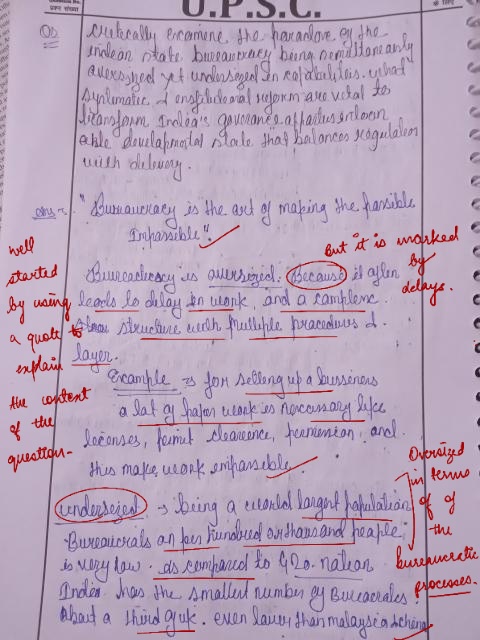 U.P.S.C.
प्रश्न संख्या
के लिए
Q5 critically examine the paradox of the
indean state bureaucracy being semultaneanly
oversized yet undersized in capabilities. what
systmatic & enstitutional reform are vital to
transform India's goverance apparatus into an
able developmental state that balances regulation
with delivery.
Ans:- "Bureaucracy is the art of making the possible
Impossible"
Bureaucracy is oversized. Because it often
leads to delay in work and a complex
slow structure with multiple procedures &
layer.
Example → for setting up a bussiness
a lot of paper work is necessary like
licenses, permit clearence, permission, and
this make work impossible
undersized → being a world largest population
Bureaucrats on per hundred or thousand people,
is very low. as compared to G20. nation
India has the smallest number of Bureacrates.
about a third of U.K. even lower than malaysia & china
well
started
by using
a quote to
explain
the content
of the
question-
But it is marked
by
delays.
Oversized
in terms
of
of
the
bureaucratic
processes.